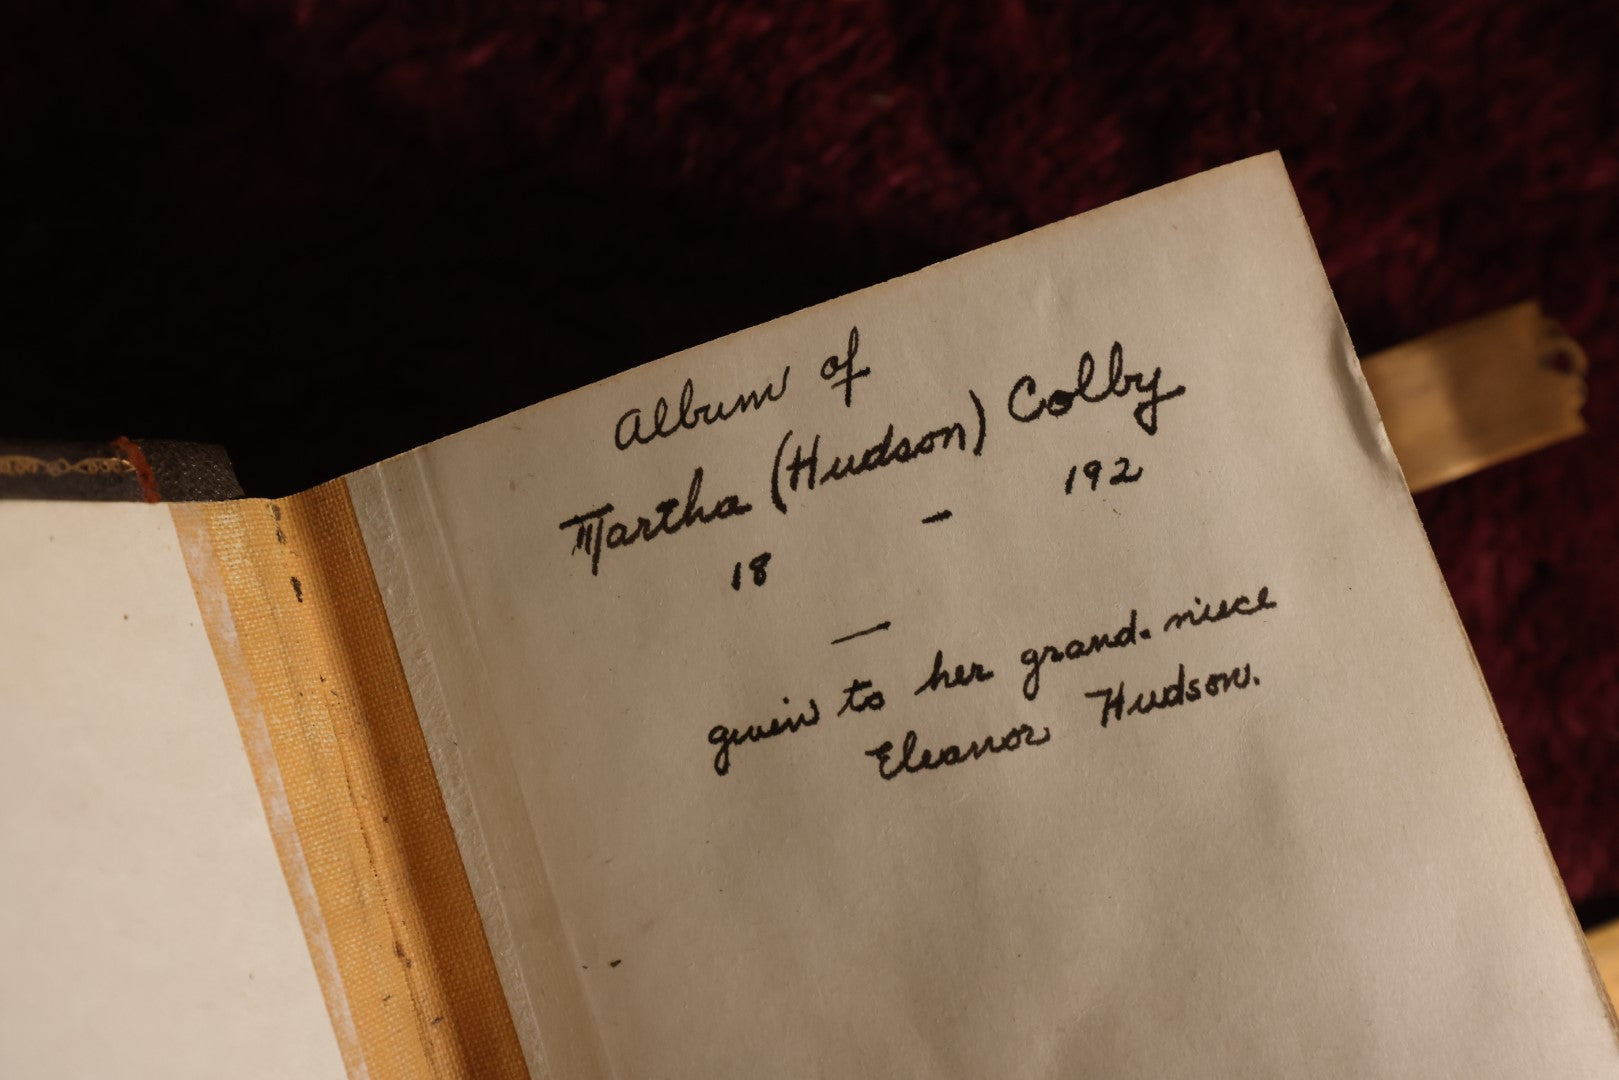 Album of
Martha (Hudson) Colby
18 - 192
—
given to her grand-niece
Eleanor Hudson.